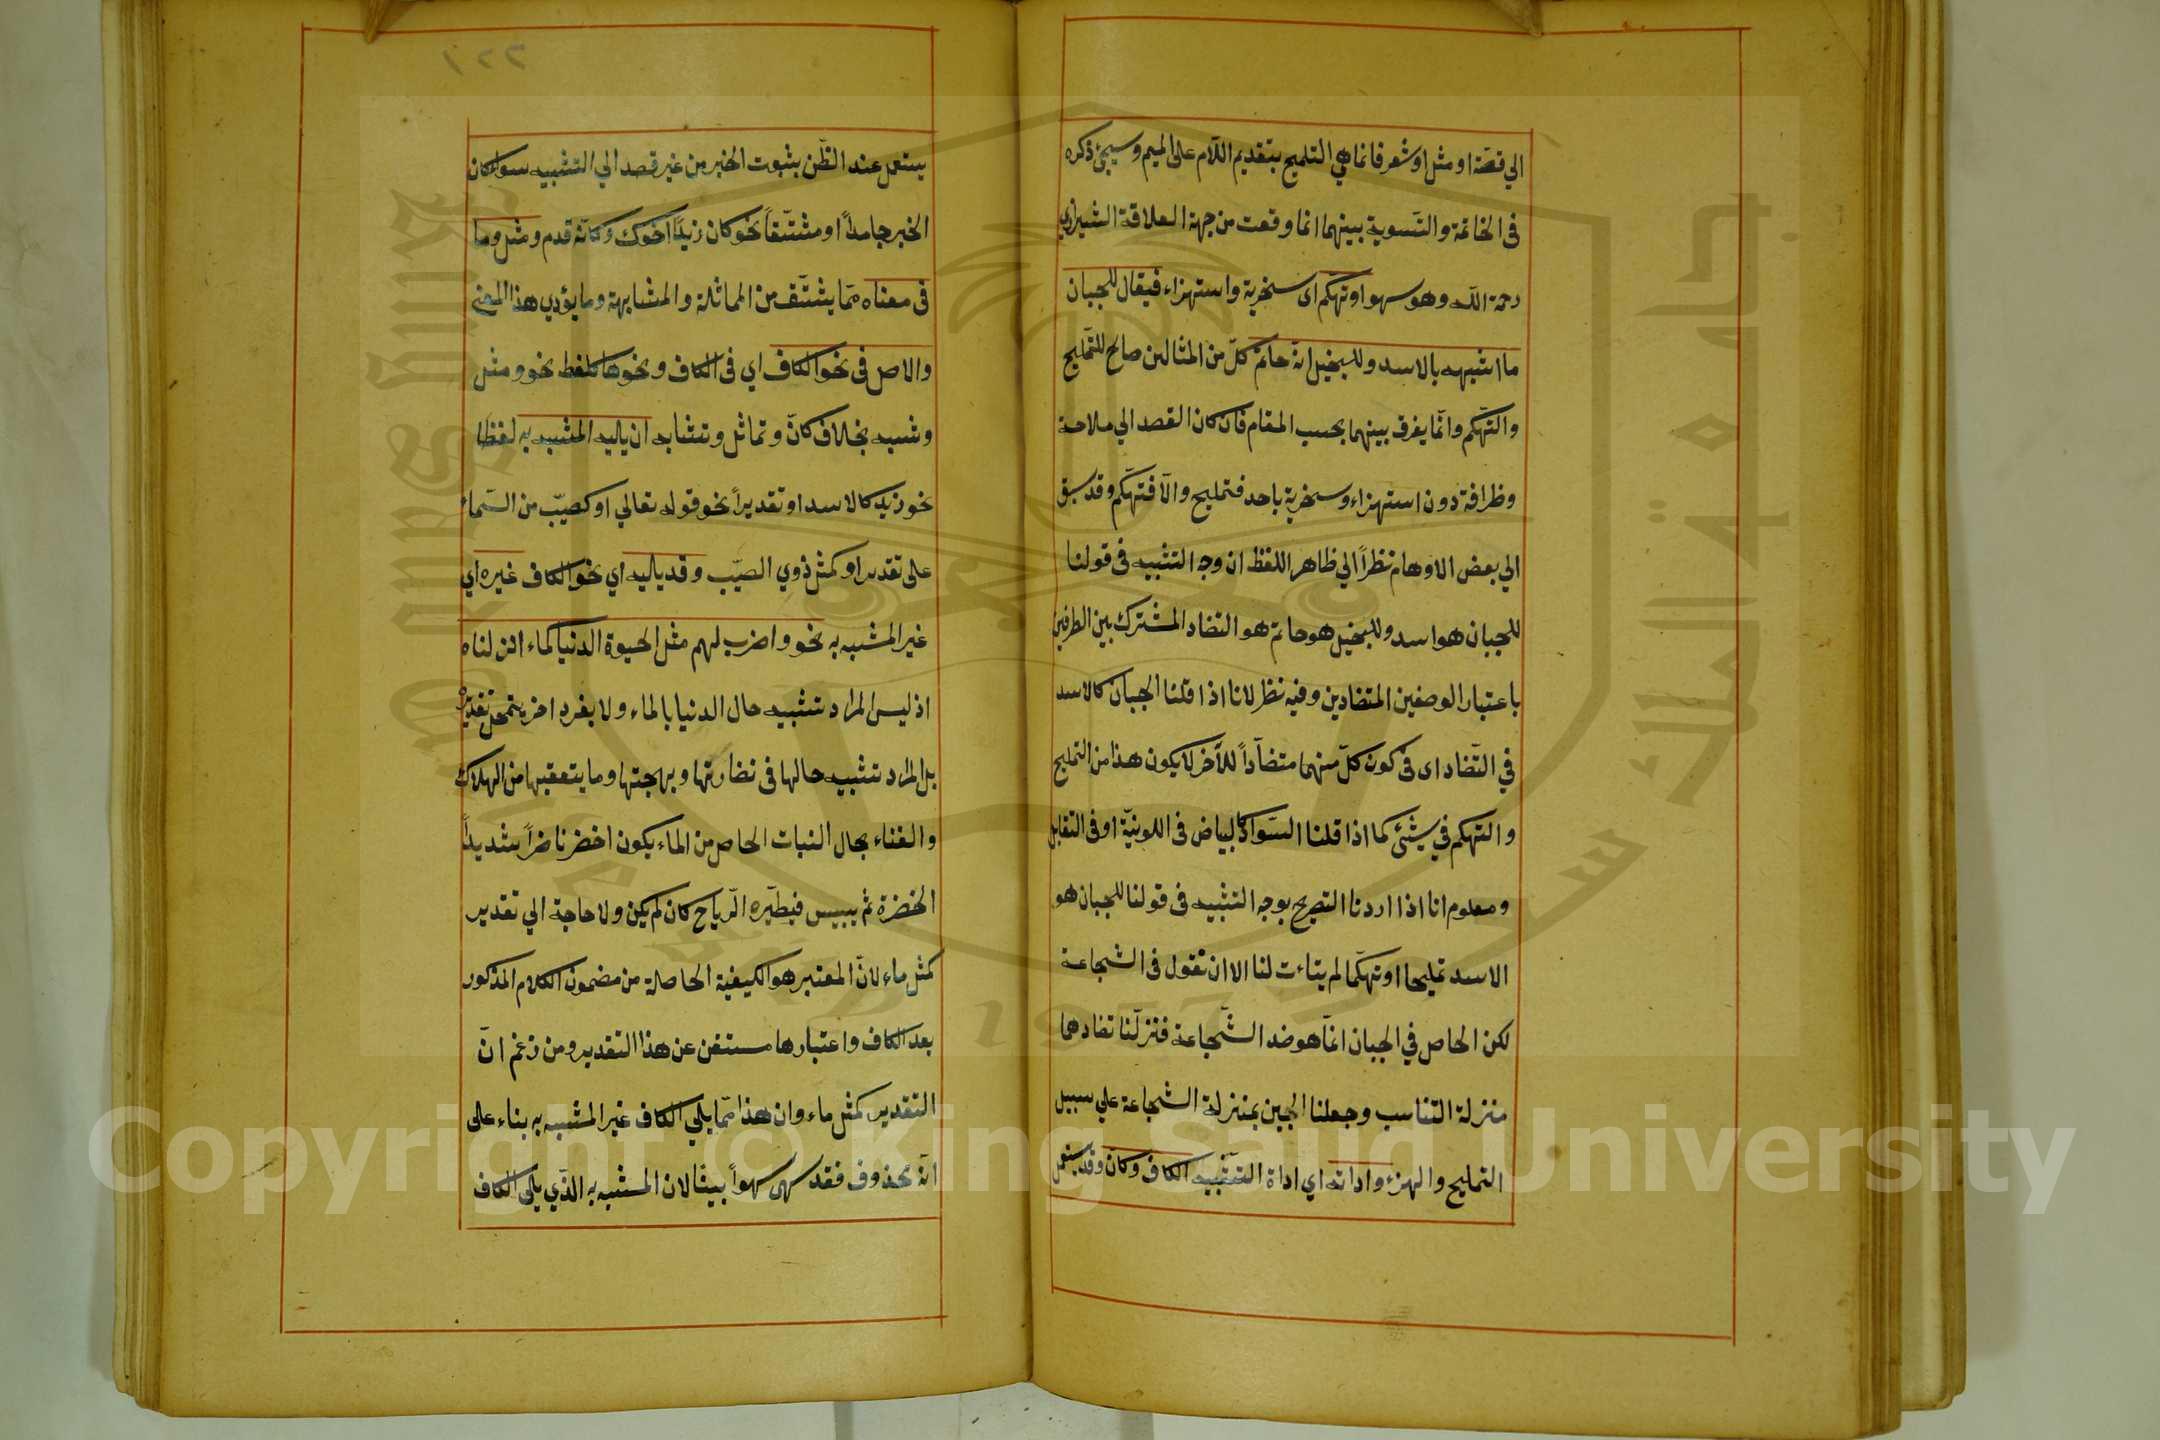 الي قصّة او مثل او شعر فانما هي التلميح بتقديم اللّام على الميم وسيجئ ذكره
فى الخاتمة والتّسوية بينهما انما وقعت من جهة العلاقة الشيرازي
رحمة اللّه وهو سهو او تهكّم اى سخرية واستهزاء فيقال للجبان
ما اشبهه بالاسد وللبخيل انّه حاتم كلّ من المثالين صالح للتّمليح
والتّهكّم وانّما يفرق بينهما بحسب المقام فان كان القصد الي ملاحة
وظرافة دون استهزاء وسخرية باحد فتمليح والّا فتهكّم وقد سبق
الي بعض الاوهام نظراً الي ظاهر اللفظ ان وجه التشبيه فى قولنا
للجبان هو اسد وللبخيل هو حاتم هو التضاد المشترك بين الطرفين
باعتبار الوصفين المتضادين وفيه نظر لانا اذا قلنا الجبان كالاسد
في التّضاد اى فى كون كلّ منهما متضادّاً للآخر لا يكون هذا من التمليح
والتهكم في شئ كما اذا قلنا السّواد كالبياض فى اللونيّة او فى التقابل
ومعلوم انا اذا اردنا التصريح بوجه التشبيه فى قولنا للجبان هو
الاسد تمليحا او تهكّما لم يتاءت لنا الا ان نقول فى الشجاعة
لكن الحاصل في الجبان انّما هو ضد الشّجاعة فنزلّنا تضادهما
منزلة التناسب وجعلنا الجبن بمنزلة الشجاعة علي سبيل
التمليح والهزء واداته اي اداة التشبيه الكاف وكان وقد يستعمل
٢٢١
يستعمل عند الظّن بثبوت الخبر من غير قصد الي التشبيه سواء كان
الخبر جامداً او مشتقّاً نحو كان زيداً اخوك وكانّه قدم ومثل وما
فى معناه ممّا يشتق من المماثلة والمشابهة وما يؤدي هذا المعنى
والاصل فى نحو الكاف اي فى الكاف ونحوها كلفظ نحو ومثل
وشبه بخلاف كانّ وتماثل وتشابه ان يليه المشبه به لفظا
نحو زيد كالاسد او تقديراً نحو قوله تعالي او كصيّب من السّماء
على تقدير او كمثل ذوي الصيّب وقد يليه اي نحو الكاف غيره اي
غير المشبه به نحو واضرب لهم مثل الحيوة الدنيا كماء انزلناه
اذ ليس المراد تشبيه حال الدنيا بالماء ولا بفرد اخر يتمحل تقديره
بل المراد تشبيه حالها فى نضارتها وبهجتها وما يتعقبها من الهلاك
والفناء بحال النبات الحاصل من الماء يكون اخضر ناضراً شديداً
الخضرة ثم ييبس فيطيّره الرّياح كان لم يكن ولا حاجة الي تقدير
كمثل ماء لانّ المعتبر هو الكيفية الحاصلة من مضمون الكلام المذكور
بعد الكاف واعتبارها مستغن عن هذا التقدير ومن زعم انّ
التقدير كمثل ماء وان هذا ممّا يلي الكاف غير المشبه به بناء على
انّه محذوف فقد سهى سهواً بيّنا لان المشبه به الذّي يلى الكاف
Copyright © King Saud University
1957